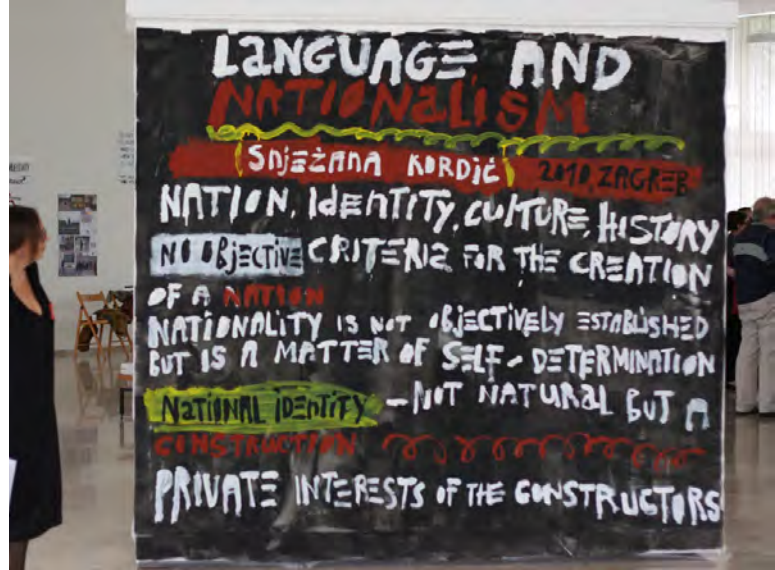 LANGUAGE AND
NATIONALISM
SNJEŽANA KORDIĆ 2010, ZAGREB
NATION, IDENTITY, CULTURE, HISTORY
NO OBJECTIVE CRITERIA FOR THE CREATION
OF A NATION
NATIONALITY IS NOT OBJECTIVELY ESTABLISHED
BUT IS A MATTER OF SELF-DETERMINATION
NATIONAL IDENTITY – NOT NATURAL BUT A
CONSTRUCTION
PRIVATE INTERESTS OF THE CONSTRUCTORS